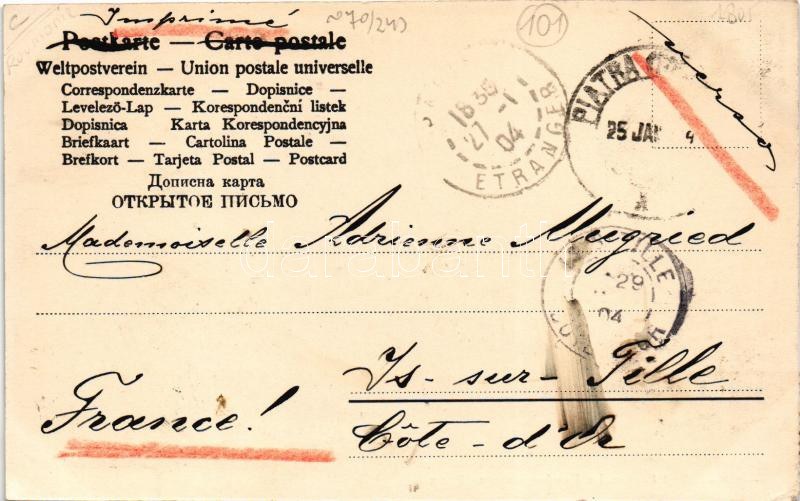 Imprimé
Postkarte — Carte postale
Weltpostverein — Union postale universelle
Correspondenzkarte — Dopisnice —
Levelező-Lap — Korespondenční listek
Dopisnica Karta Korespondencyjna
Briefkaart — Cartolina Postale —
Brefkort — Tarjeta Postal — Postcard
Дописна карта
ОТКРЫТОЕ ПИСЬМО
101
verso
18 35
27 -1
04
ETRANGER
PIATRA
25 JAN 4
Mademoiselle Adrienne Mugried
TILLE
29
04
Is-sur-Tille
France!
Côte-d'Or